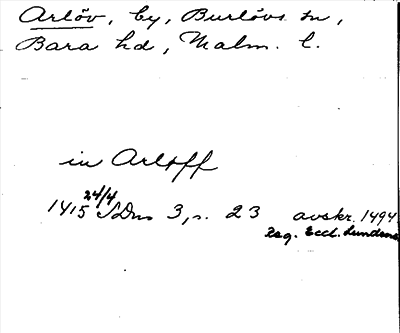 Arlöv, by, Burlövs sn,
Bara hd, Malm. l.
in Arloff
1415 24/4 SDns 3, s. 23 avskr. 1494
Reg. Eccl. Lundens